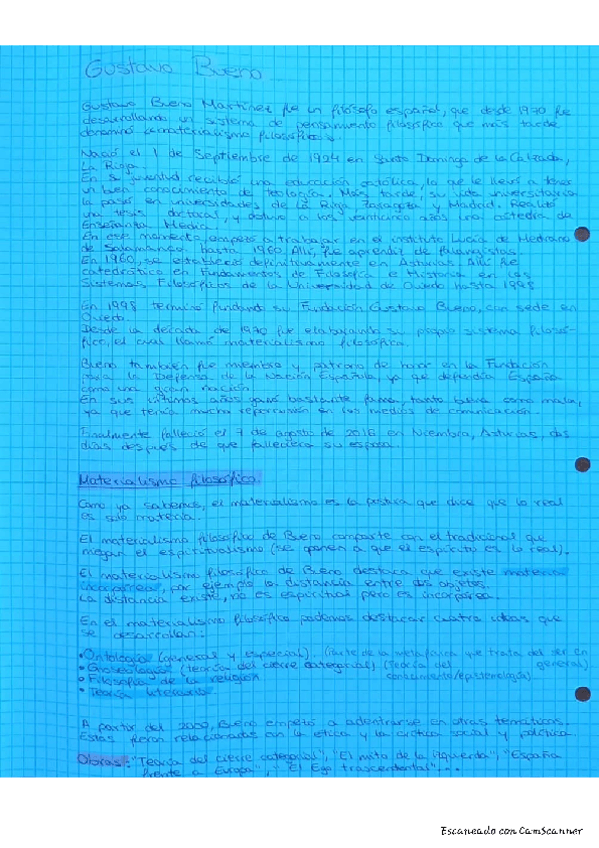 Gustavo Bueno
Gustavo Bueno Martínez fue un filósofo español, que desde 1970 fue
desarrollando un sistema de pensamiento filosófico que más tarde
denominó «materialismo filosófico».
Nació el 1 de Septiembre de 1924 en Santo Domingo de la Calzada,
La Rioja.
En su juventud recibió una educación católica, lo que le llevó a tener
un buen conocimiento de teología. Más tarde, su vida universitaria
la pasó en universidades de La Rioja, Zaragoza y Madrid. Realizó
una tesis doctoral, y obtuvo a los veinticinco años una cátedra de
Enseñanza Media.
En ese momento, empezó a trabajar en el instituto Lucía de Medrano
de Salamanca, hasta 1960. Allí, fue aprendiz de
En 1960, se estableció definitivamente en Asturias. Allí fue
catedrático en Fundamentos de Filosofía e Historia en los
Sistemas Filosóficos de la Universidad de Oviedo hasta 1998.
En 1998 terminó fundando su Fundación Gustavo Bueno, con sede en
Oviedo.
Desde la década de 1970 fue elaborando su propio sistema filosó-
fico, el cual llamó materialismo filosófico.
Bueno también fue miembro y patrono de honor en la Fundación
para la Defensa de la Nación Española, ya que defendía España
como una gran nación.
En sus últimos años ganó bastante fama, tanto buena como mala,
ya que tenía mucha repercusión en los medios de comunicación.
Finalmente falleció el 7 de agosto de 2016 en Niembro, Asturias, dos
días después de que falleciera su esposa.
Materialismo filosófico.
Como ya sabemos, el materialismo es la postura que dice que lo real
es sólo materia.
El materialismo filosófico de Bueno comparte con el tradicional que
niegan el espiritualismo (se oponen a que el espíritu es lo real).
El materialismo filosófico de Bueno destaca que existe materia
incorpórea, por ejemplo la distancia entre dos objetos.
La distancia existe, no es espiritual pero es incorpórea.
En el materialismo filosófico podemos destacar cuatro ideas que
se desarrollan:
•Ontología (general y especial). (Parte de la metafísica que trata del ser en general)
•Gnoseología (teoría del cierre categorial) (Teoría del conocimiento/epistemología)
•Filosofía de la religión
•Teoría literaria
A partir del Bueno empezó a adentrarse en otras temáticas.
Estas fueron relacionadas con la ética y la crítica social y política.
Obras: "Teoría del cierre categorial", "El mito de la izquierda", "España
frente a Europa", "El Ego trascendental",...
Escaneado con CamScanner